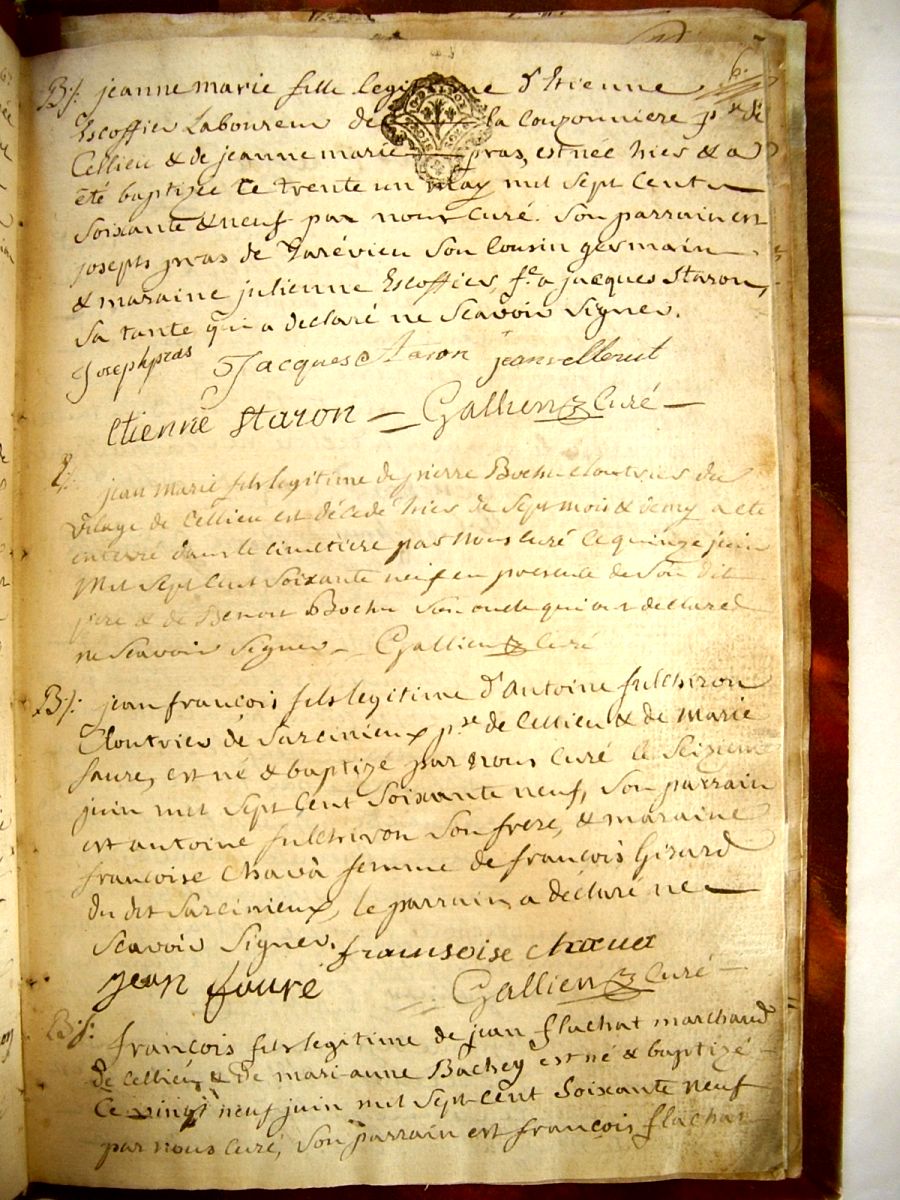 6.
B./. jeanne marie fille legit me d'Etienne
Escoffier Laboureur de la Couzonniere p.sse de
Cellieu & de jeanne marie pras, est née hier & a
été baptizée le trente un may mil sept cent
soixante & neuf par nous Curé. Son parrain est
joseph pras de Son Cousin germain
& maraine julienne Escoffier, f.e a jacques Staron,
Sa tante qui a declaré ne Scavoir Signer.
Joseph pras Jacques Staron jean
Etienne Staron Gallien Curé
jean marie fils legitime de pierre Bochu Cloutrier du
vilage de Cellieu est décédé hier de Sept mois & demy a eté
enterré dans le cimetiere par nous Curé le quinze juin
mil sept cent soixante neuf en presence de Son dit
pere & de Benoit Bochu Son oncle qui ont declaré
ne Scavoir Signer Gallien Curé
B./: jean françois fils legitime d'Antoine fulchiron
Cloutrier de Sarcinieux p.sse de Cellieu & de Marie
faure, est né & baptizé par nous Curé le Seizieme
juin mil sept Cent Soixante neuf, Son parrain
est antoine fulchiron Son frere, & maraine
françoise Chavà femme de françois Girard
du dit Sarcinieux, le parrain a déclaré ne
Scavoir Signer. fransoise chaua
jean fauré Gallien Curé
B./: françois fils legitime de jean flachat marchand
de Cellieu & de mari-anne Bachey est né & baptizé
Ce vingt neuf juin mil sept-cent Soixante neuf
par nous Curé, Son parrain est françois flachat